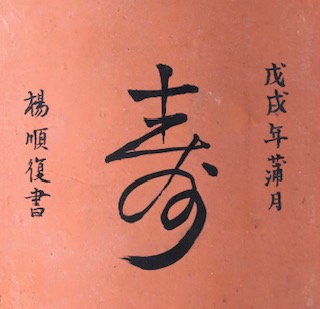 戊戌年蒲月
寿
楊順復書